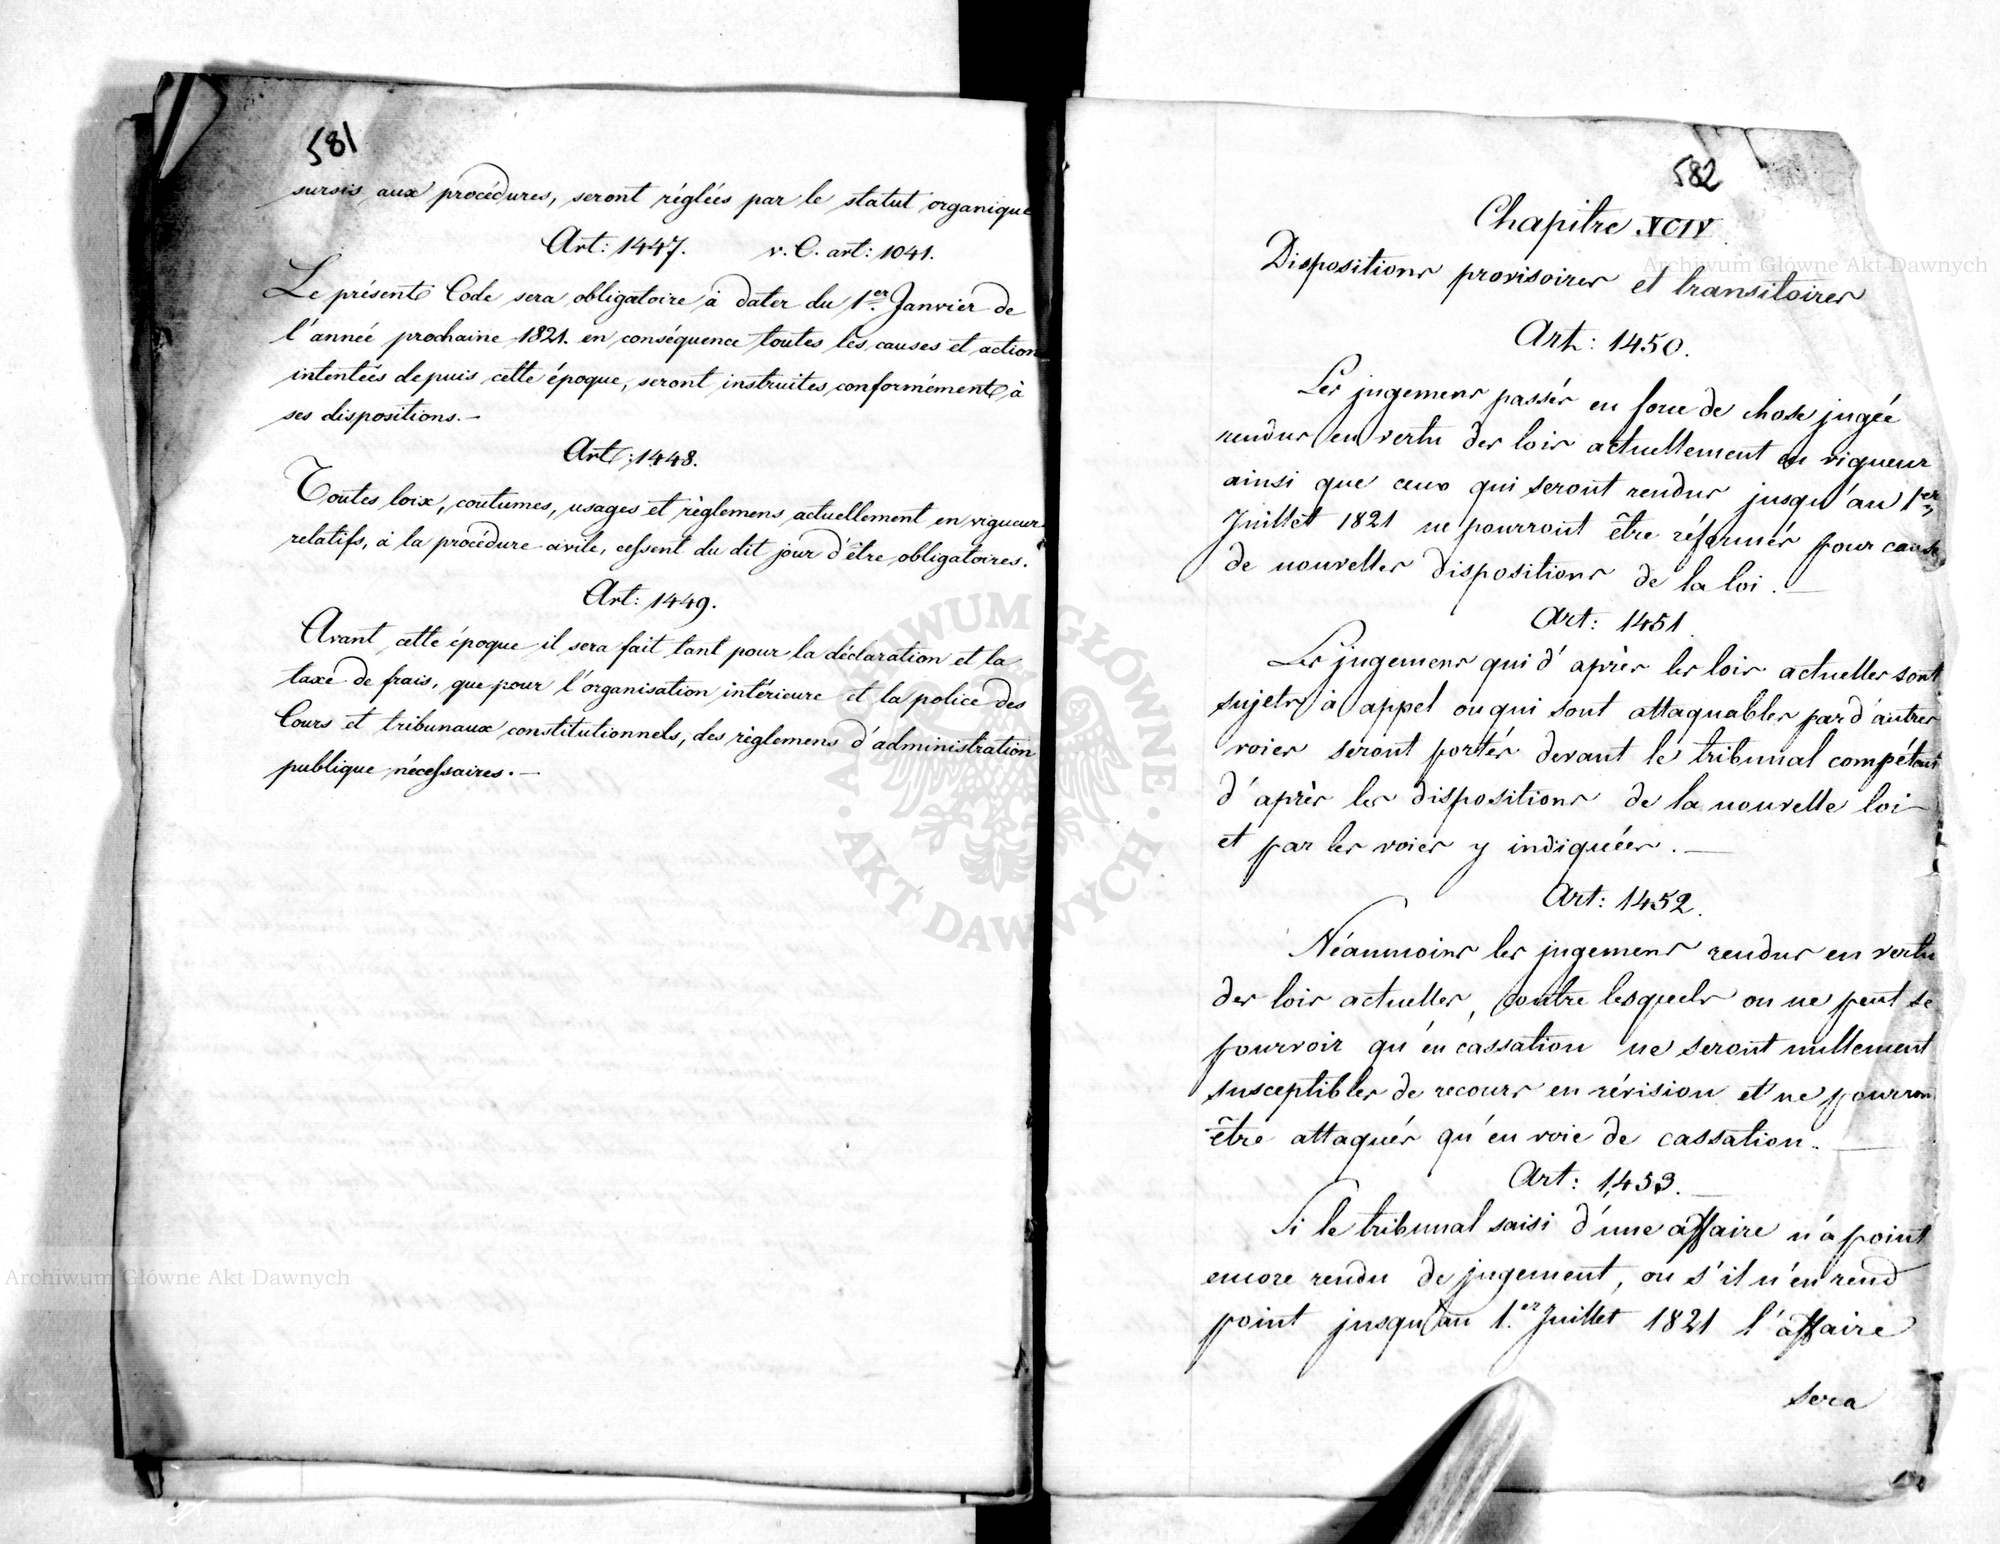 581
sursis aux procédures, seront réglées par le statut organique
Art: 1447. v. C. art: 1041.
Le présent Code sera obligatoire à dater du 1.er Janvier de
l'année prochaine 1821. en conséquence toutes les causes et action
intentées depuis cette époque, seront instruites conformément à
ses dispositions.—
Art: 1448.
Toutes loix, coutumes, usages et règlemens actuellement en vigueur
relatifs, à la procédure civile, cessent du dit jour d'être obligatoires.
Art: 1449.
Avant cette époque il sera fait tant pour la déclaration et la
taxe de frais, que pour l'organisation intérieure et la police des
Cours et tribunaux constitutionnels, des règlemens d'administration
publique nécessaires.—
582
Chapitre XCIV.
Dispositions provisoires et transitoires
Art: 1450.
Les jugemens passés en force de chose jugée
rendus en vertu des lois actuellement en vigueur
ainsi que ceux qui seront rendus jusqu'au 1er
Juillet 1821 ne pourront être réformés pour cause
de nouvelles dispositions de la loi.—
Art: 1451.
Les jugemens qui d'après les lois actuelles sont
sujets à appel ou qui sont attaquables par d'autres
voies seront portés devant le tribunal compétent
d'après les dispositions de la nouvelle loi
et par les voies y indiquées.—
Art: 1452.
Néanmoins les jugemens rendus en vertu
des lois actuelles, contre lesquels on ne peut se
pourvoir qu'en cassation ne seront nullement
susceptibles de recours en révision et ne pourron
être attaqués qu'en voie de cassation.—
Art: 1453.—
Si le tribunal saisi d'une affaire n'a point
encore rendu de jugement, ou s'il n'en rend
point jusqu'au 1.er Juillet 1821 l'affaire
sera
Archiwum Główne Akt Dawnych
Archiwum Główne Akt Dawnych
ARCHIWUM GŁÓWNE · AKT DAWNYCH ·